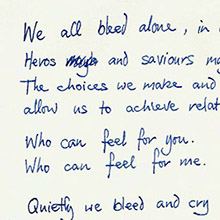 We all bleed alone, in
Heros and saviours
The choices we make and
allow us to achieve
Who can feel for you.
Who can feel for me.
Quietly we bleed and cry